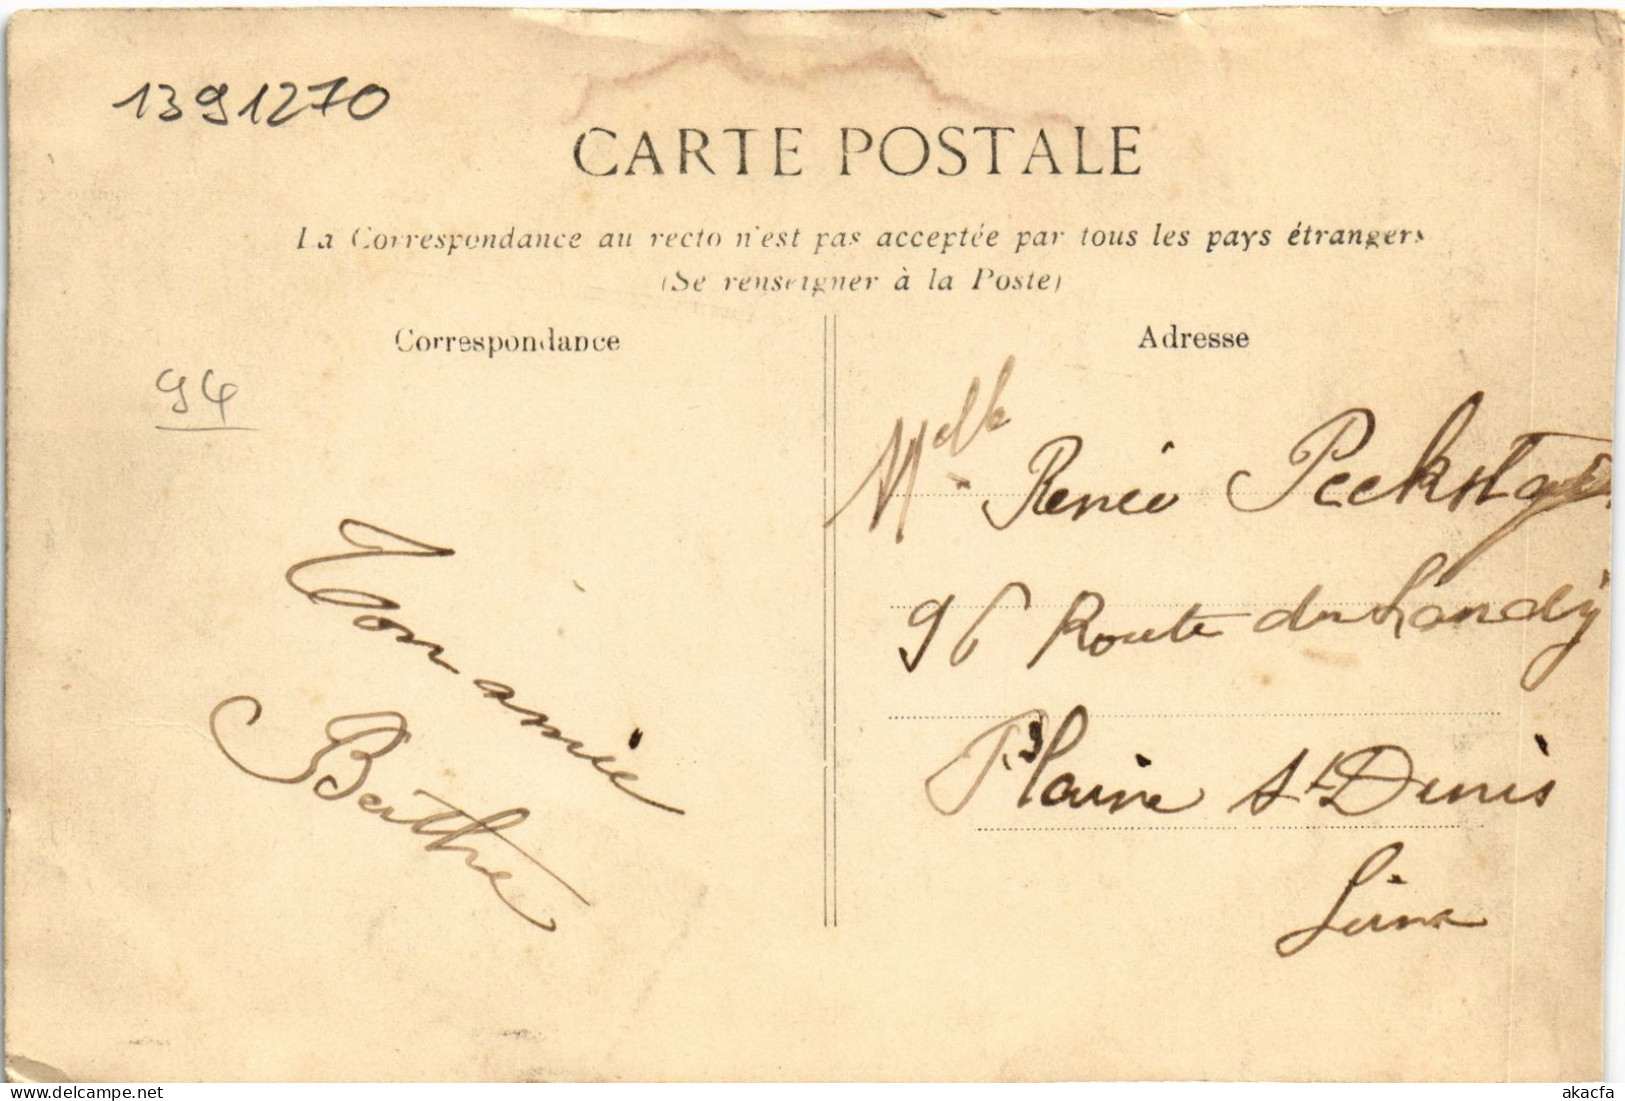 1391270
CARTE POSTALE
La Correspondance au recto n'est pas acceptée par tous les pays étrangers
(Se renseigner à la Poste)
Correspondance
94
Ton amie
Berthe
Adresse
Melle Renée
96 Route du Landy
Plaine St Denis
Seine
akacfa